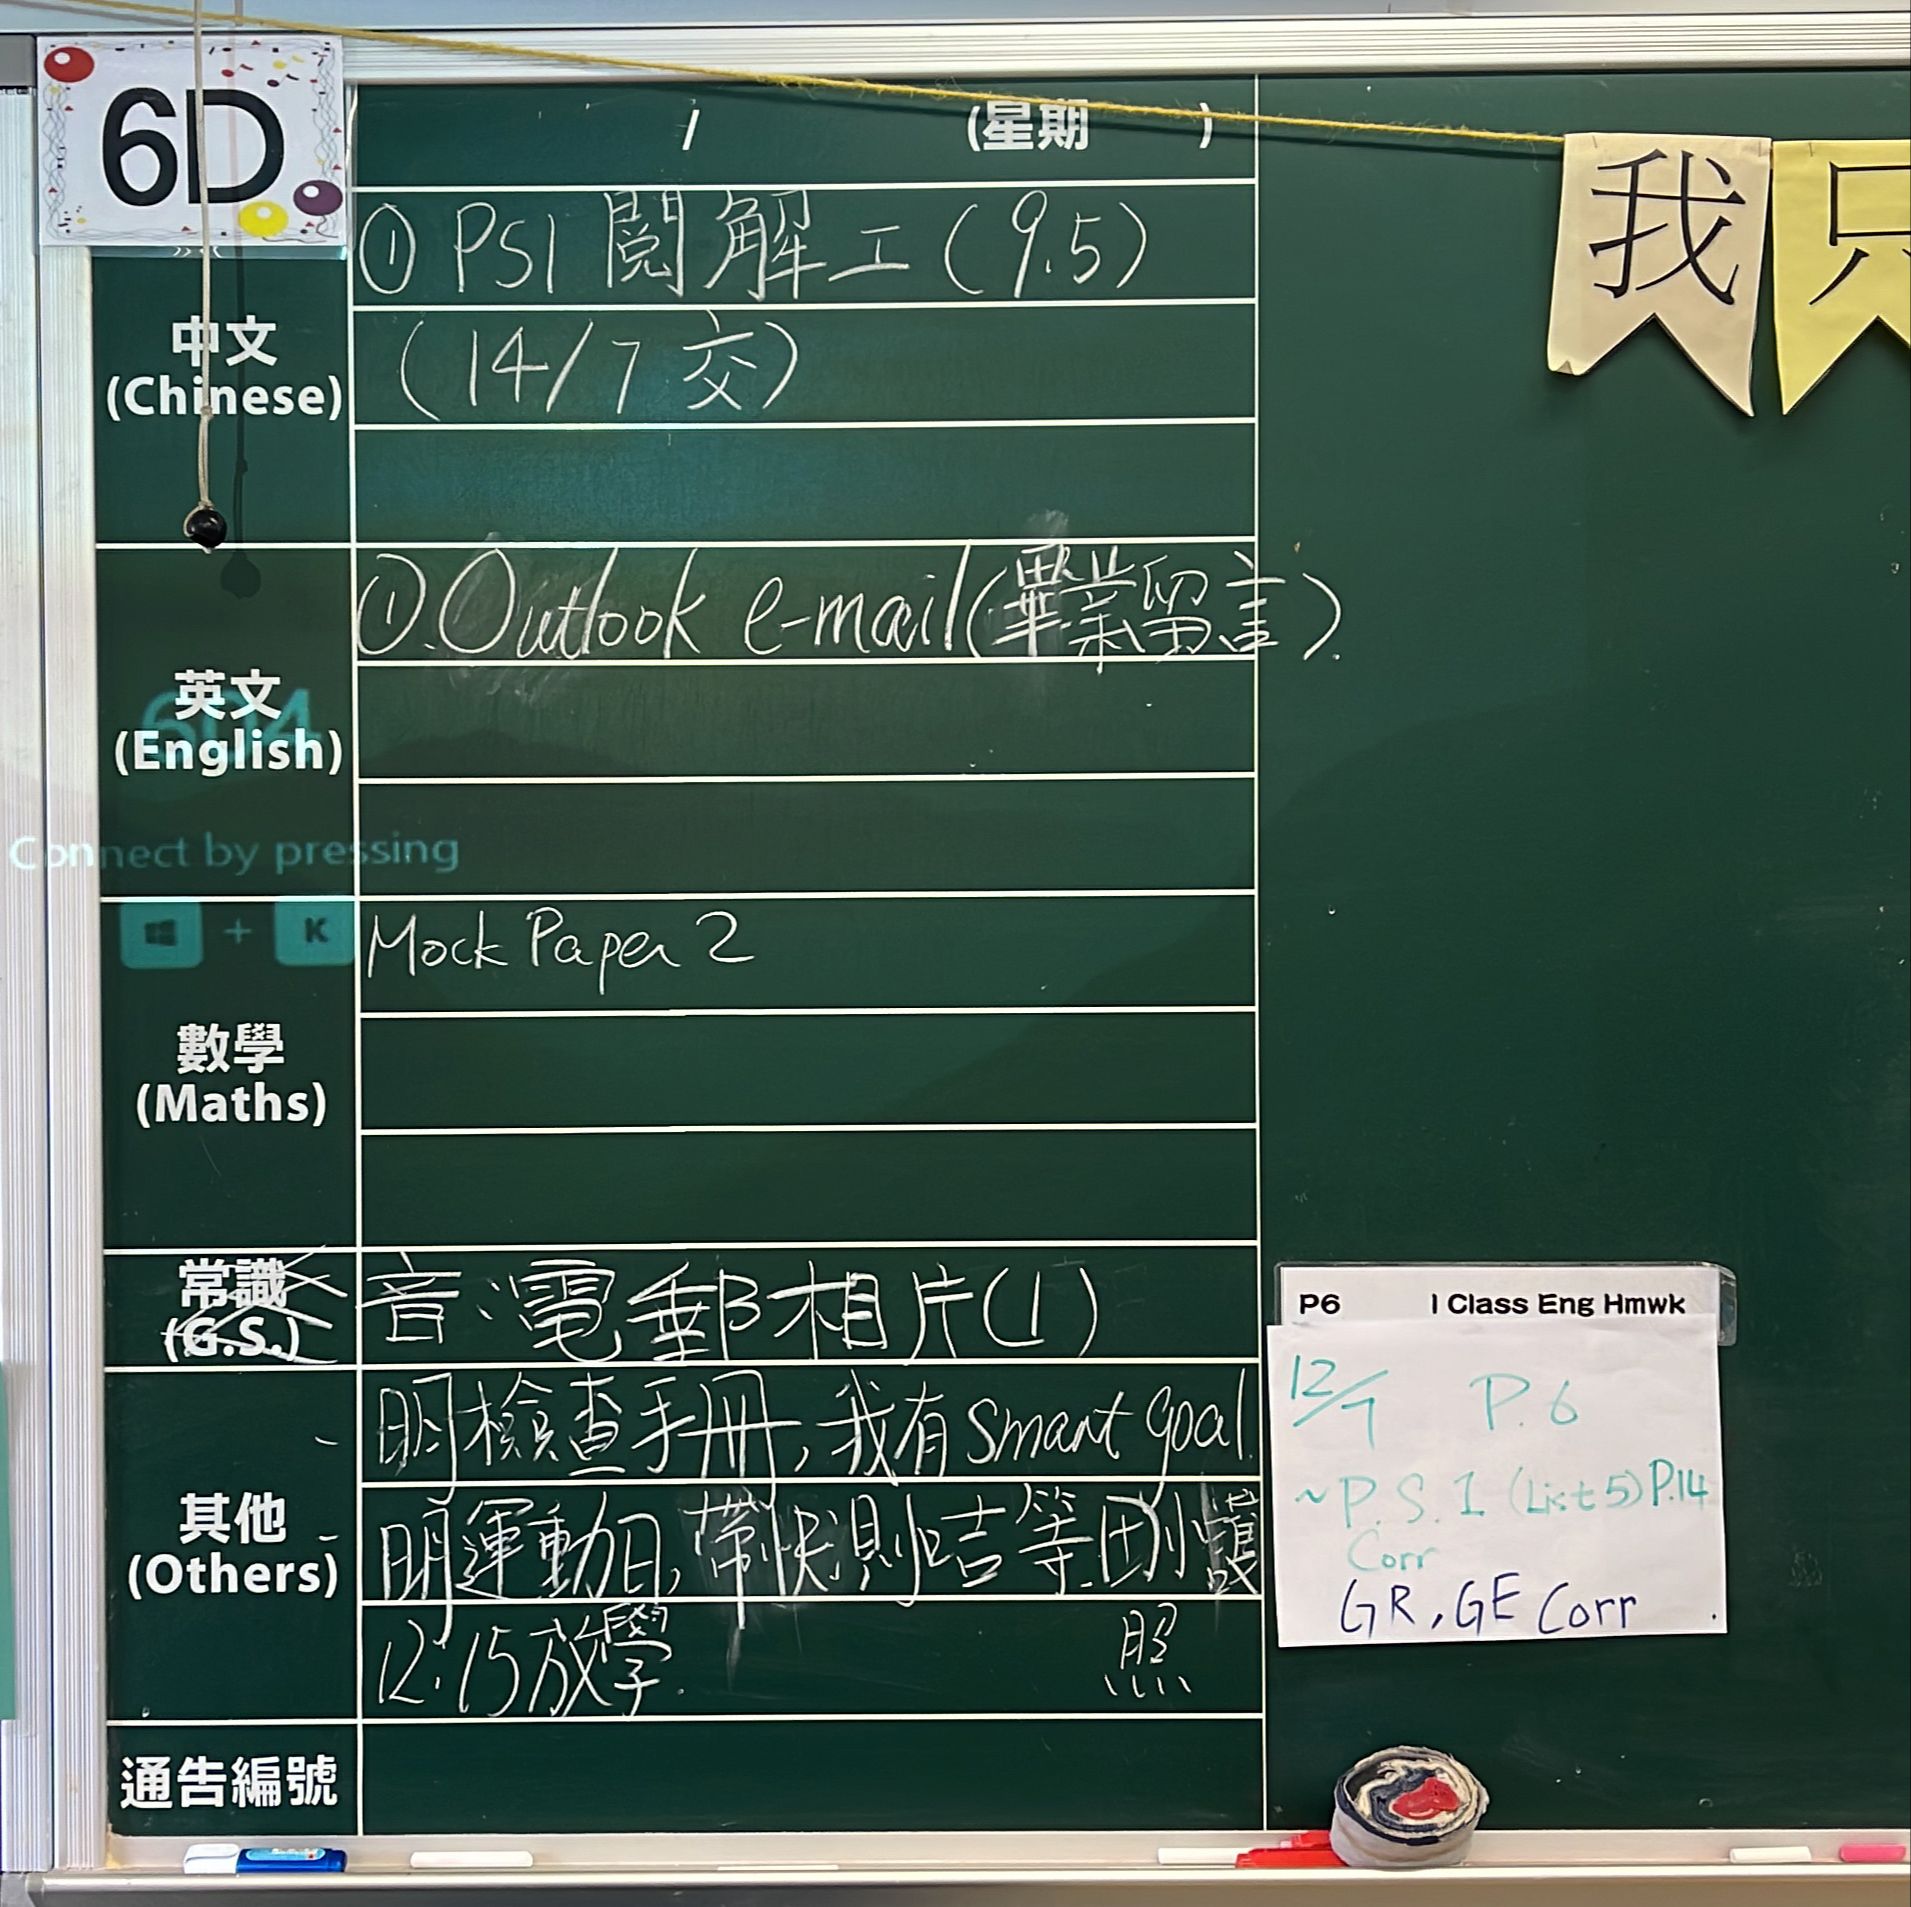 6D
/ (星期 )
中文
(Chinese)
① PS1 閱解工(9.5)
(14/7 交)
英文
(English)
①.Outlook e-mail(畢業留言).
604
Connect by pressing
+ K
數學
(Maths)
Mock Paper 2
常識
(G.S.)
音:電郵相片(1)
其他
(Others)
明檢查手冊,我有smart goal.
明運動日,帶快測咭等.回小護
照
12:15放學.
通告編號
我只
P6 I Class Eng Hmwk
12/7 P.6
~P.S.1 (List 5) P.14
Corr
GR, GE Corr.